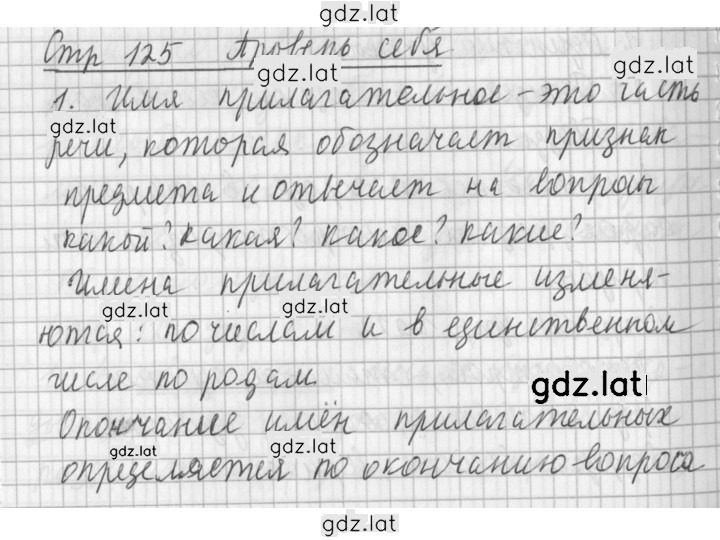 gdz.lat
Стр 125 Проверь себя
gdz.lat
gdz.lat
1. Имя прилагательное - это часть
gdz.lat
речи, которая обозначает признак
предмета и отвечает на вопросы
какой? какая? какое? какие?
Имена прилагательные изменя-
gdz.lat
gdz.lat
ются: по числам и в единственном
числе по родам.
gdz.lat
Окончание имён прилагательных
gdz.lat
gdz.lat
определяется по окончанию вопроса
gdz.lat